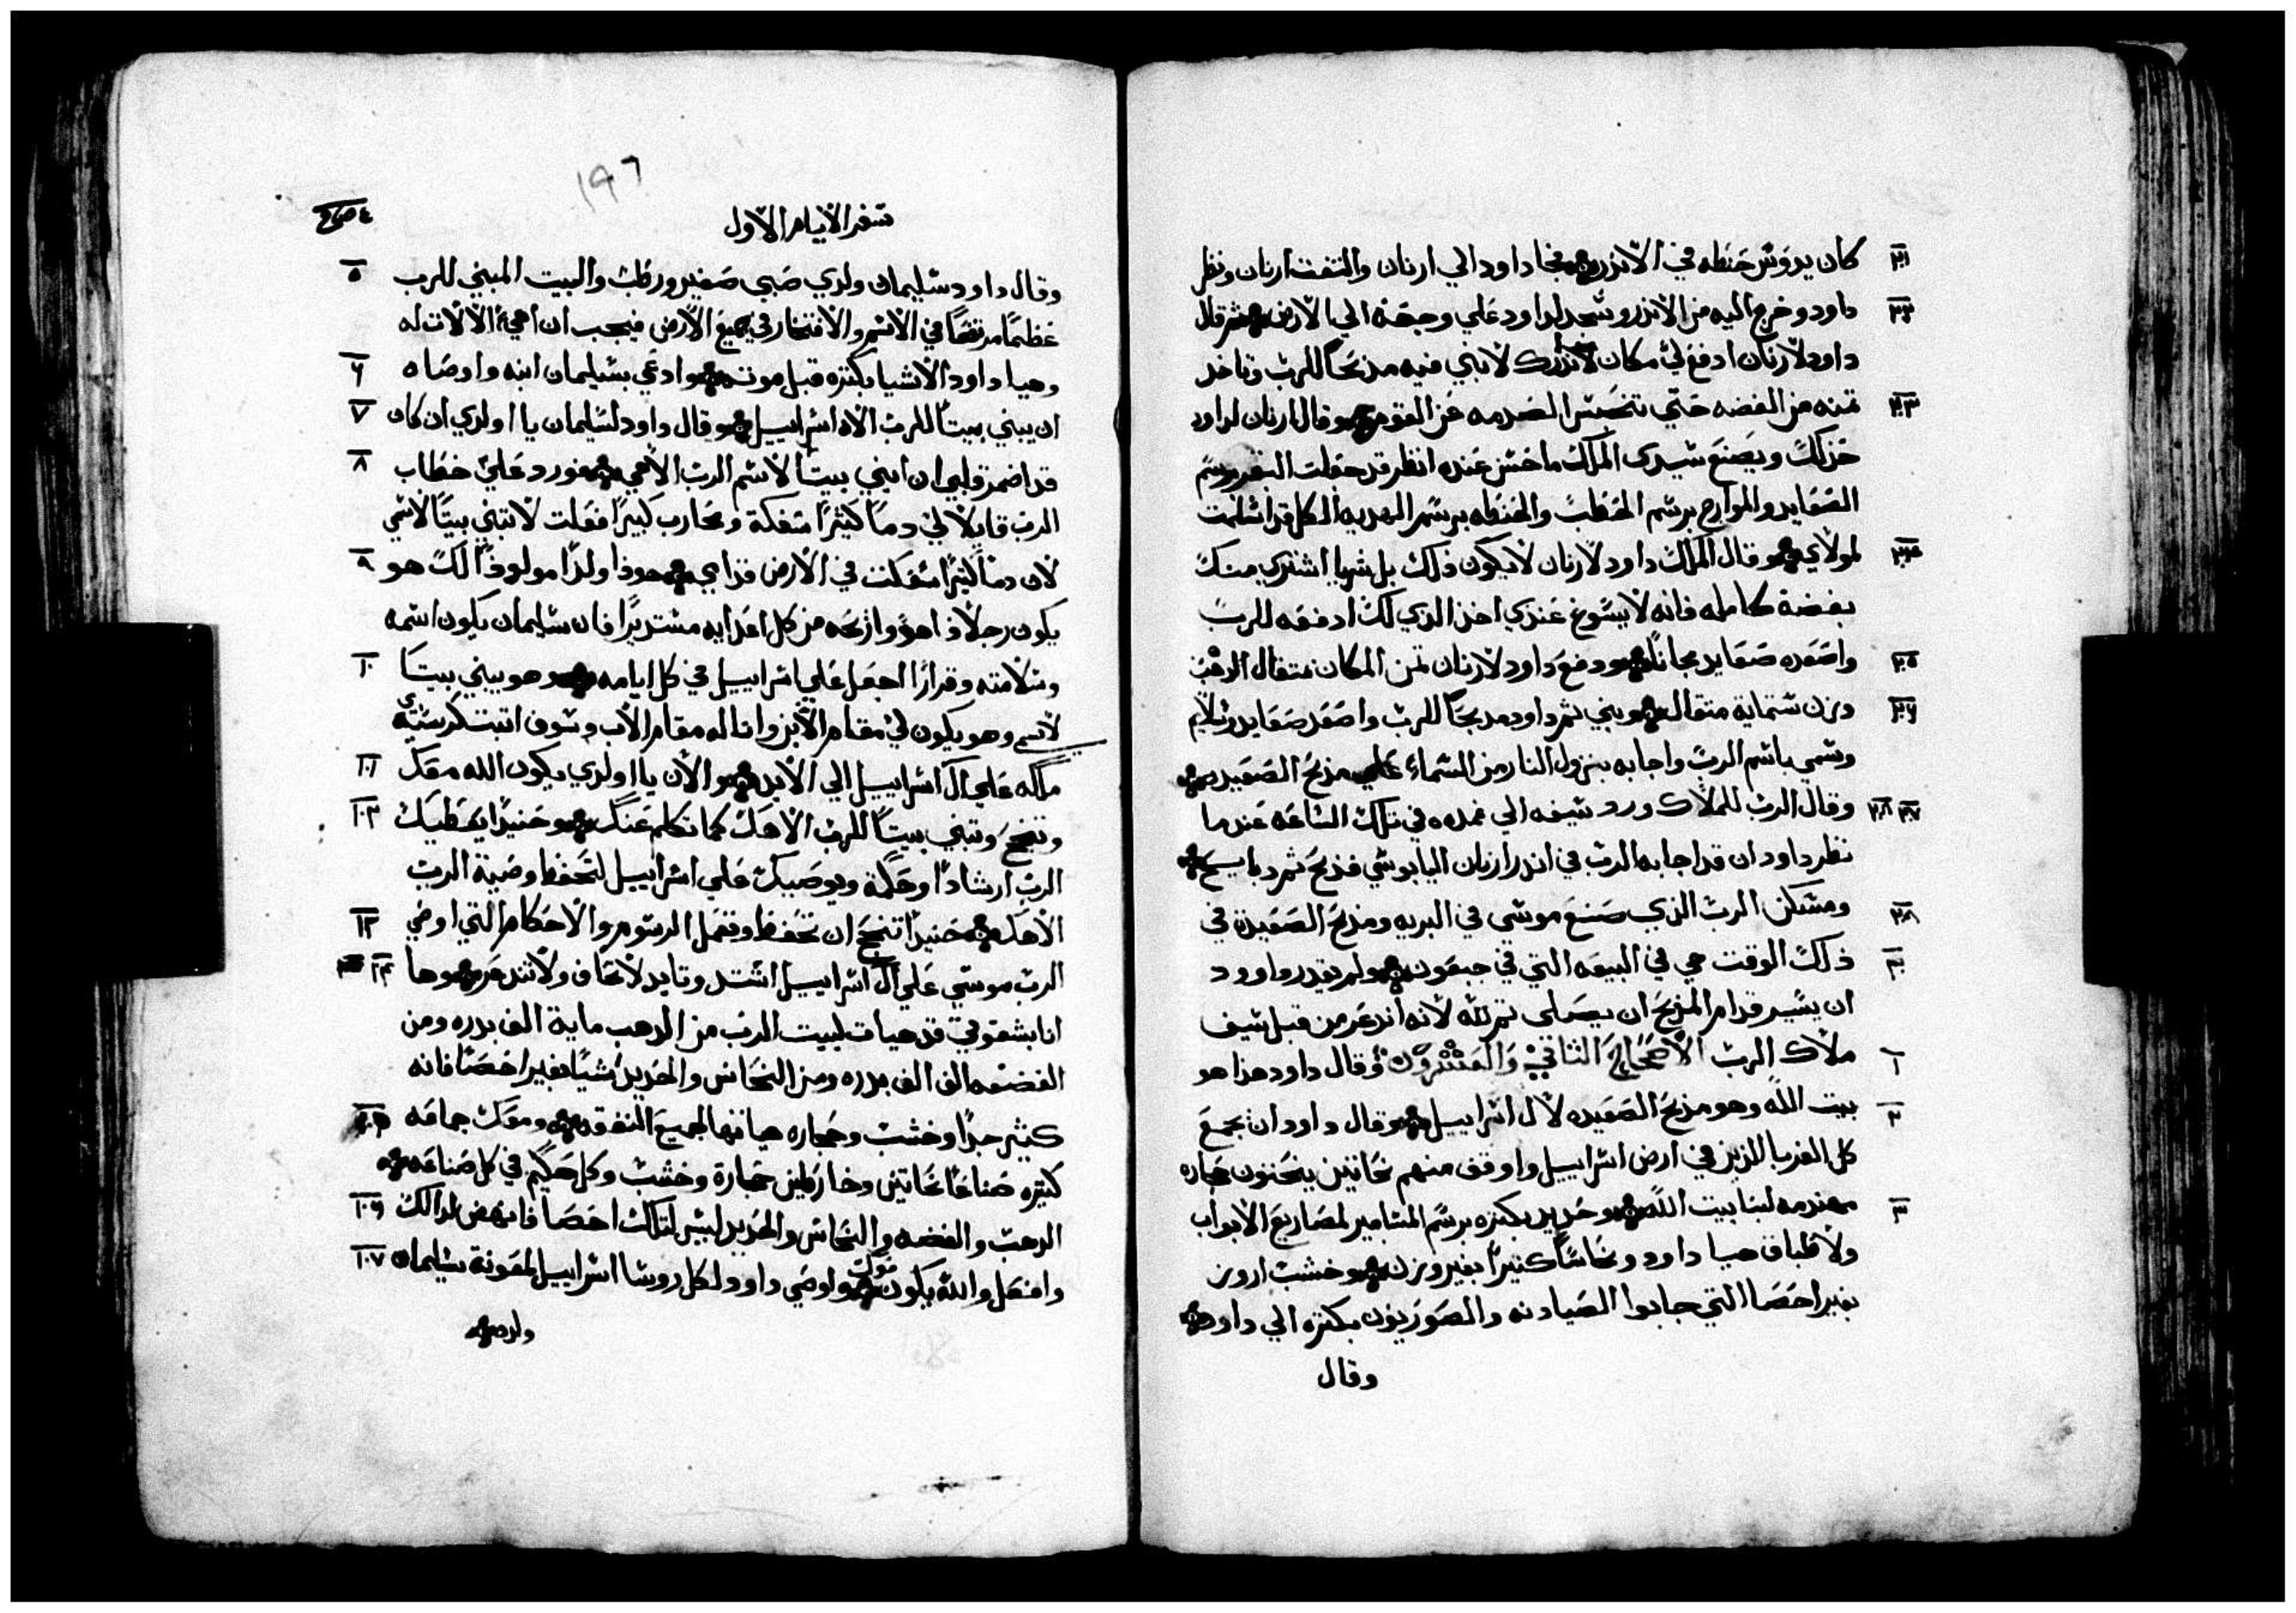 كان يدوس حنطه في الاندر فجا داود الي ارنان والتفت ارنان ونظر ٢١
داود وخرج اليه من الاندر وسجد لداود علي وجهه الي الارض ثم قال ٢٢
داود لارنان ادفع لي مكان لاندرك لابني فيه مذبحًا للرب وتاخد
تمنه من الفضه حتي تنحبس الصدمه عن القوم وقال ارنان لداود ٢٣
خذ لك ويصنع سيدي الملك ما حسن عنده انظر قد جعلت البقر برسم
الصعايد والموارج برسم الحطب والحنطه برسم الهديه الكل قد اسلمت
لمولاي وقال الملك داود لارنان لا يكون ذلك بل شرايا اشتري منك ٢٤
بفضة كامله فانه لا يسوغ عندي اخذ الذي لك ادفعه للرب
واصعده صعايد مجانًا ودفع داود لارنان تمن المكان متقال الدهب ٢٥
وزن ستماية متقال وبني ثم داود مدبحًا للرب واصعد صعايد وسلايم ٢٦
وسمي باسم الرب واجابه بنزول النار من السماء علي مذبح الصعيد
وقال الرب للملاك ورد سيفه الي غمده في تلك الساعه عندما ٢٧ ٢٨
نظر داود ان قد اجابه الرب في اندر ارنان اليابوسي فذبح ثم دبايح
ومسكن الرب الذي صنع موسى في البريه ومذبح الصعيدة في ٢٩
ذلك الوقت هي في البيعه التي في جبعون ولم يقدر داوود ٣٠
ان يسير قدام المذبح ان يصلى ثم لله لانه اندعر من قبل سيف
ملاك الرب الاصحاح الثاني والعشرون وقال داود هذا هو ١
بيت الله وهو مذبح الصعيده لال اسراييل وقال داود ان يجمع ٢
كل الغربا اللذين في ارض اسراييل واوقف منهم نحاتين ينحتون حجاره
مهندمه لبنا بيت الله وحديد بكتره برسم المسامير لمصاريع الابواب ٣
ولاطباق هيا داود ونحاسًا كثيرًا بغير وزن وخشب ارور
بغير احصا التي جابوا الصيادنه والصوريون بكتره الي داود
وقال
١٩٦
سفر الايام الاول
وقال داود سليمان ولدي صبي صغير ورطب والبيت المبني للرب ٥
عظيمًا مرتفعًا في الاسم والافتخار في جميع الارض فيجب ان اهيئ الالات له
وهيا داود الاشيا بكتره قبل موته وادعي بسليمان ابنه واوصاه ٦
ان يبني بيتًا للرب الاه اسراييل وقال داود لسليمان يا اولدي ان كان ٧
قد اضمر قلبي ان ابني بيتًا لاسم الرب الاهي فورد علي خطاب ٨
الرب قايلًا لي دمًا كثيرًا سفكة وبحارب كبيرًا فعلت لا تبني بيتًا لاسمي
لان دمًا كثيرًا سفكت في الارض قدامي هوذا ولدًا مولودًا لك هو ٩
يكون رجلًا ذا هدؤ وازيحه من كل اعدايه مستديرًا فان سليمان يكون اسمه
وسلامته وقرارًا اجعل علي اسراييل في كل ايامه وهو يبني بيتًا ١٠
لاسمي وهو يكون لي مقام الابن وانا له مقام الاب وسوف اتبت كرسي
ملكه علي ال اسراييل الي الابد والان يا اولدي يكون الله معك ١١
وتنجح وتبني بيتًا للرب الاهك كما تكلم عنك وحنيدًا يعطيك ١٢
الرب ارشادًا وحكمة ويوصيك علي اسراييل لتحفظ وصية الرب
الاهك حنيدًا تنجح ان تحفظ وتعمل الرسوم والاحكام التي اوصي ١٣
الرب موسي علي ال اسراييل اشتد وتايد لا تخاف ولا تندعر وها ١٤
انا بشقوتي قد هيات لبيت الرب من الدهب ماية الف بدره ومن
الفضه الف الف بدره ومن النحاس والحديد شيًا بغير احصًا فانه
كثير جدًا وخشب وحجاره هياتها لجميع النفقه ومعك جماعه ١٥
كثيره صناعًا نحاتين وخارطين حجارة وخشب وكل حكيم في كل صناعه
الدهب والفضه والنحاس والحديد ليس لتلك احصا فانهض لدالك ١٦
وافعل والله يكون معك واوصي داود لكل روسا اسراييل لمعونة سليمان ١٧
ولده